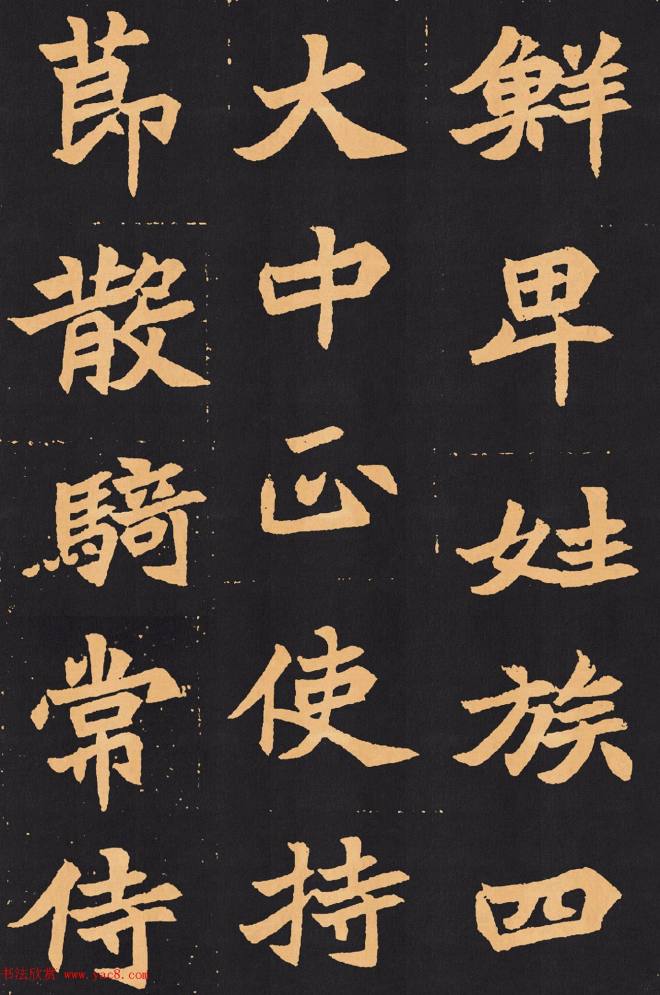 鮮卑姓族四
大中正使持
節散騎常侍
书法欣赏 www.yac8.com